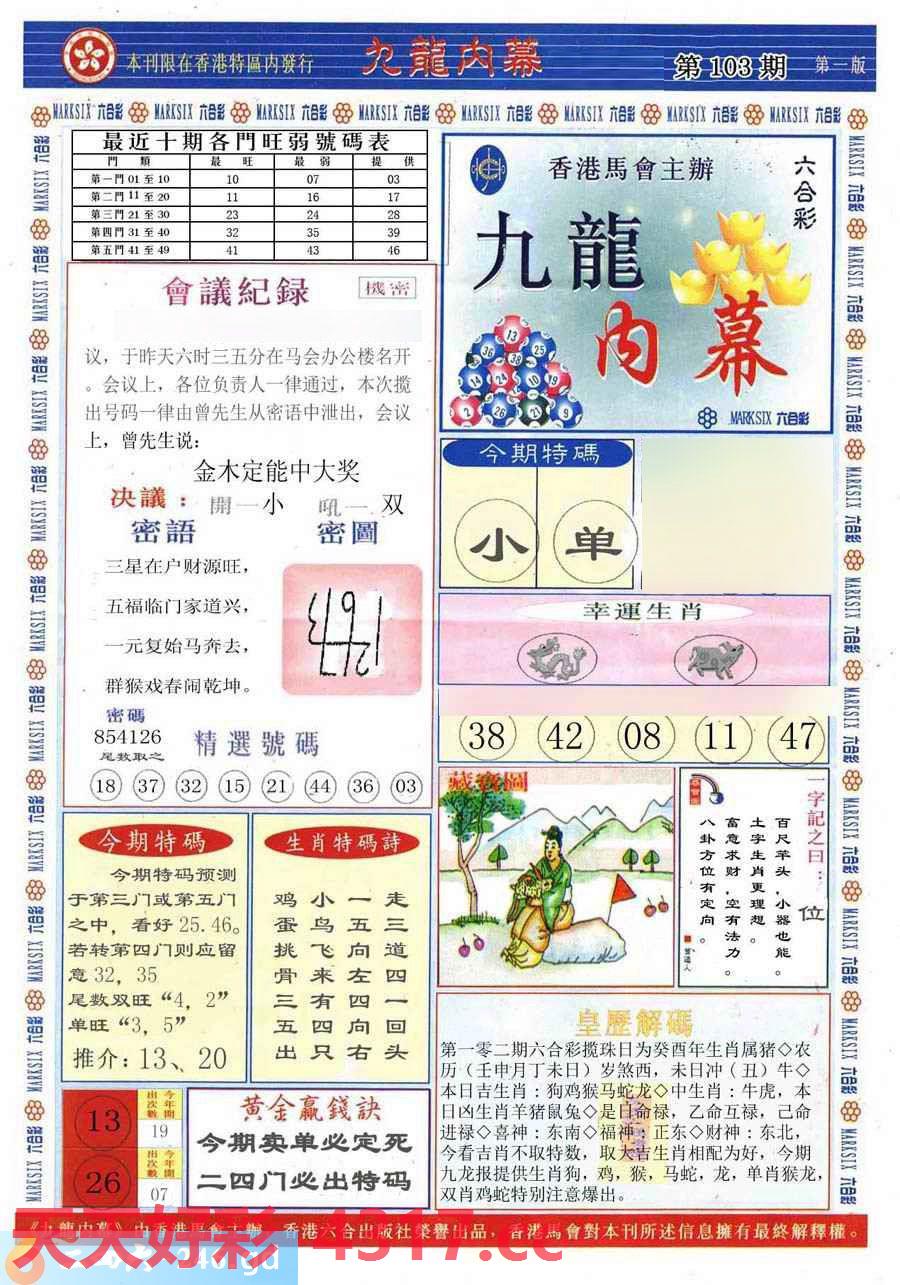 本刊限在香港特區内發行
九龍内幕
第 103 期
第一版
MARKSIX 六合彩
最近十期各門旺弱號碼表
門 類 最 旺 最 弱 提 供
第一門 01 至 10 10 07 03
第二門 11 至 20 11 16 17
第三門 21 至 30 23 24 28
第四門 31 至 40 32 35 39
第五門 41 至 49 41 43 46
會議紀録
機密
议，于昨天六时三五分在马会办公楼名开
。会议上，各位负责人一律通过，本次揽
出号码一律由曾先生从密语中泄出，会议
上，曾先生说：
金木定能中大奖
决議：開一小 吼一 双
密語 密圖
三星在户财源旺，
五福临门家道兴，
一元复始马奔去，
群猴戏春闹乾坤。
密碼
854126
尾数取之
精選號碼
18 37 32 15 21 44 36 03
香港馬會主辦
六合彩
九龍
内幕
13
36 38 25
14 24 10 19
2 26 21 9
MARKSIX 六合彩
今期特碼
小 单
幸運生肖
38 42 08 11 47
今期特碼
今期特码预测
于第三门或第五门
之中，看好 25.46。
若转第四门则应留
意 32，35
尾数双旺“4，2”
单旺“3，5”
推介：13、20
生肖特碼詩
鸡小一走
蛋鸟五三
挑飞向道
骨来左四
三有四一
五四向回
出只右头
藏寶圖
一字記之曰：位
百尺竿头，小器也能。
土字生肖更理想。
富意求财，空有法力。
八卦方位有定向。
曾道人
皇歷解碼
第一零二期六合彩揽珠日为癸酉年生肖属猪◇农
历（壬申月丁未日）岁煞西，未日冲（丑）牛◇
本日吉生肖：狗鸡猴马蛇龙◇中生肖：牛虎，本
日凶生肖羊猪鼠兔◇是日命禄，乙命互禄，己命
进禄◇喜神：东南◇福神：正东◇财神：东北，
今看吉肖不取特数，取大吉生肖相配为好，今期
九龙报提供生肖狗，鸡，猴，马蛇，龙，单肖猴龙，
双肖鸡蛇特别注意爆出。
13 今年開出次數 19
26 今年開出次數 07
黄金贏錢訣
今期卖单必定死
二四门必出特码
《九龍内幕》由香港馬會主辦，香港六合出版社榮譽出品，香港馬會對本刊所述信息擁有最終解釋權。
天天好彩 4317.cc
246.gd